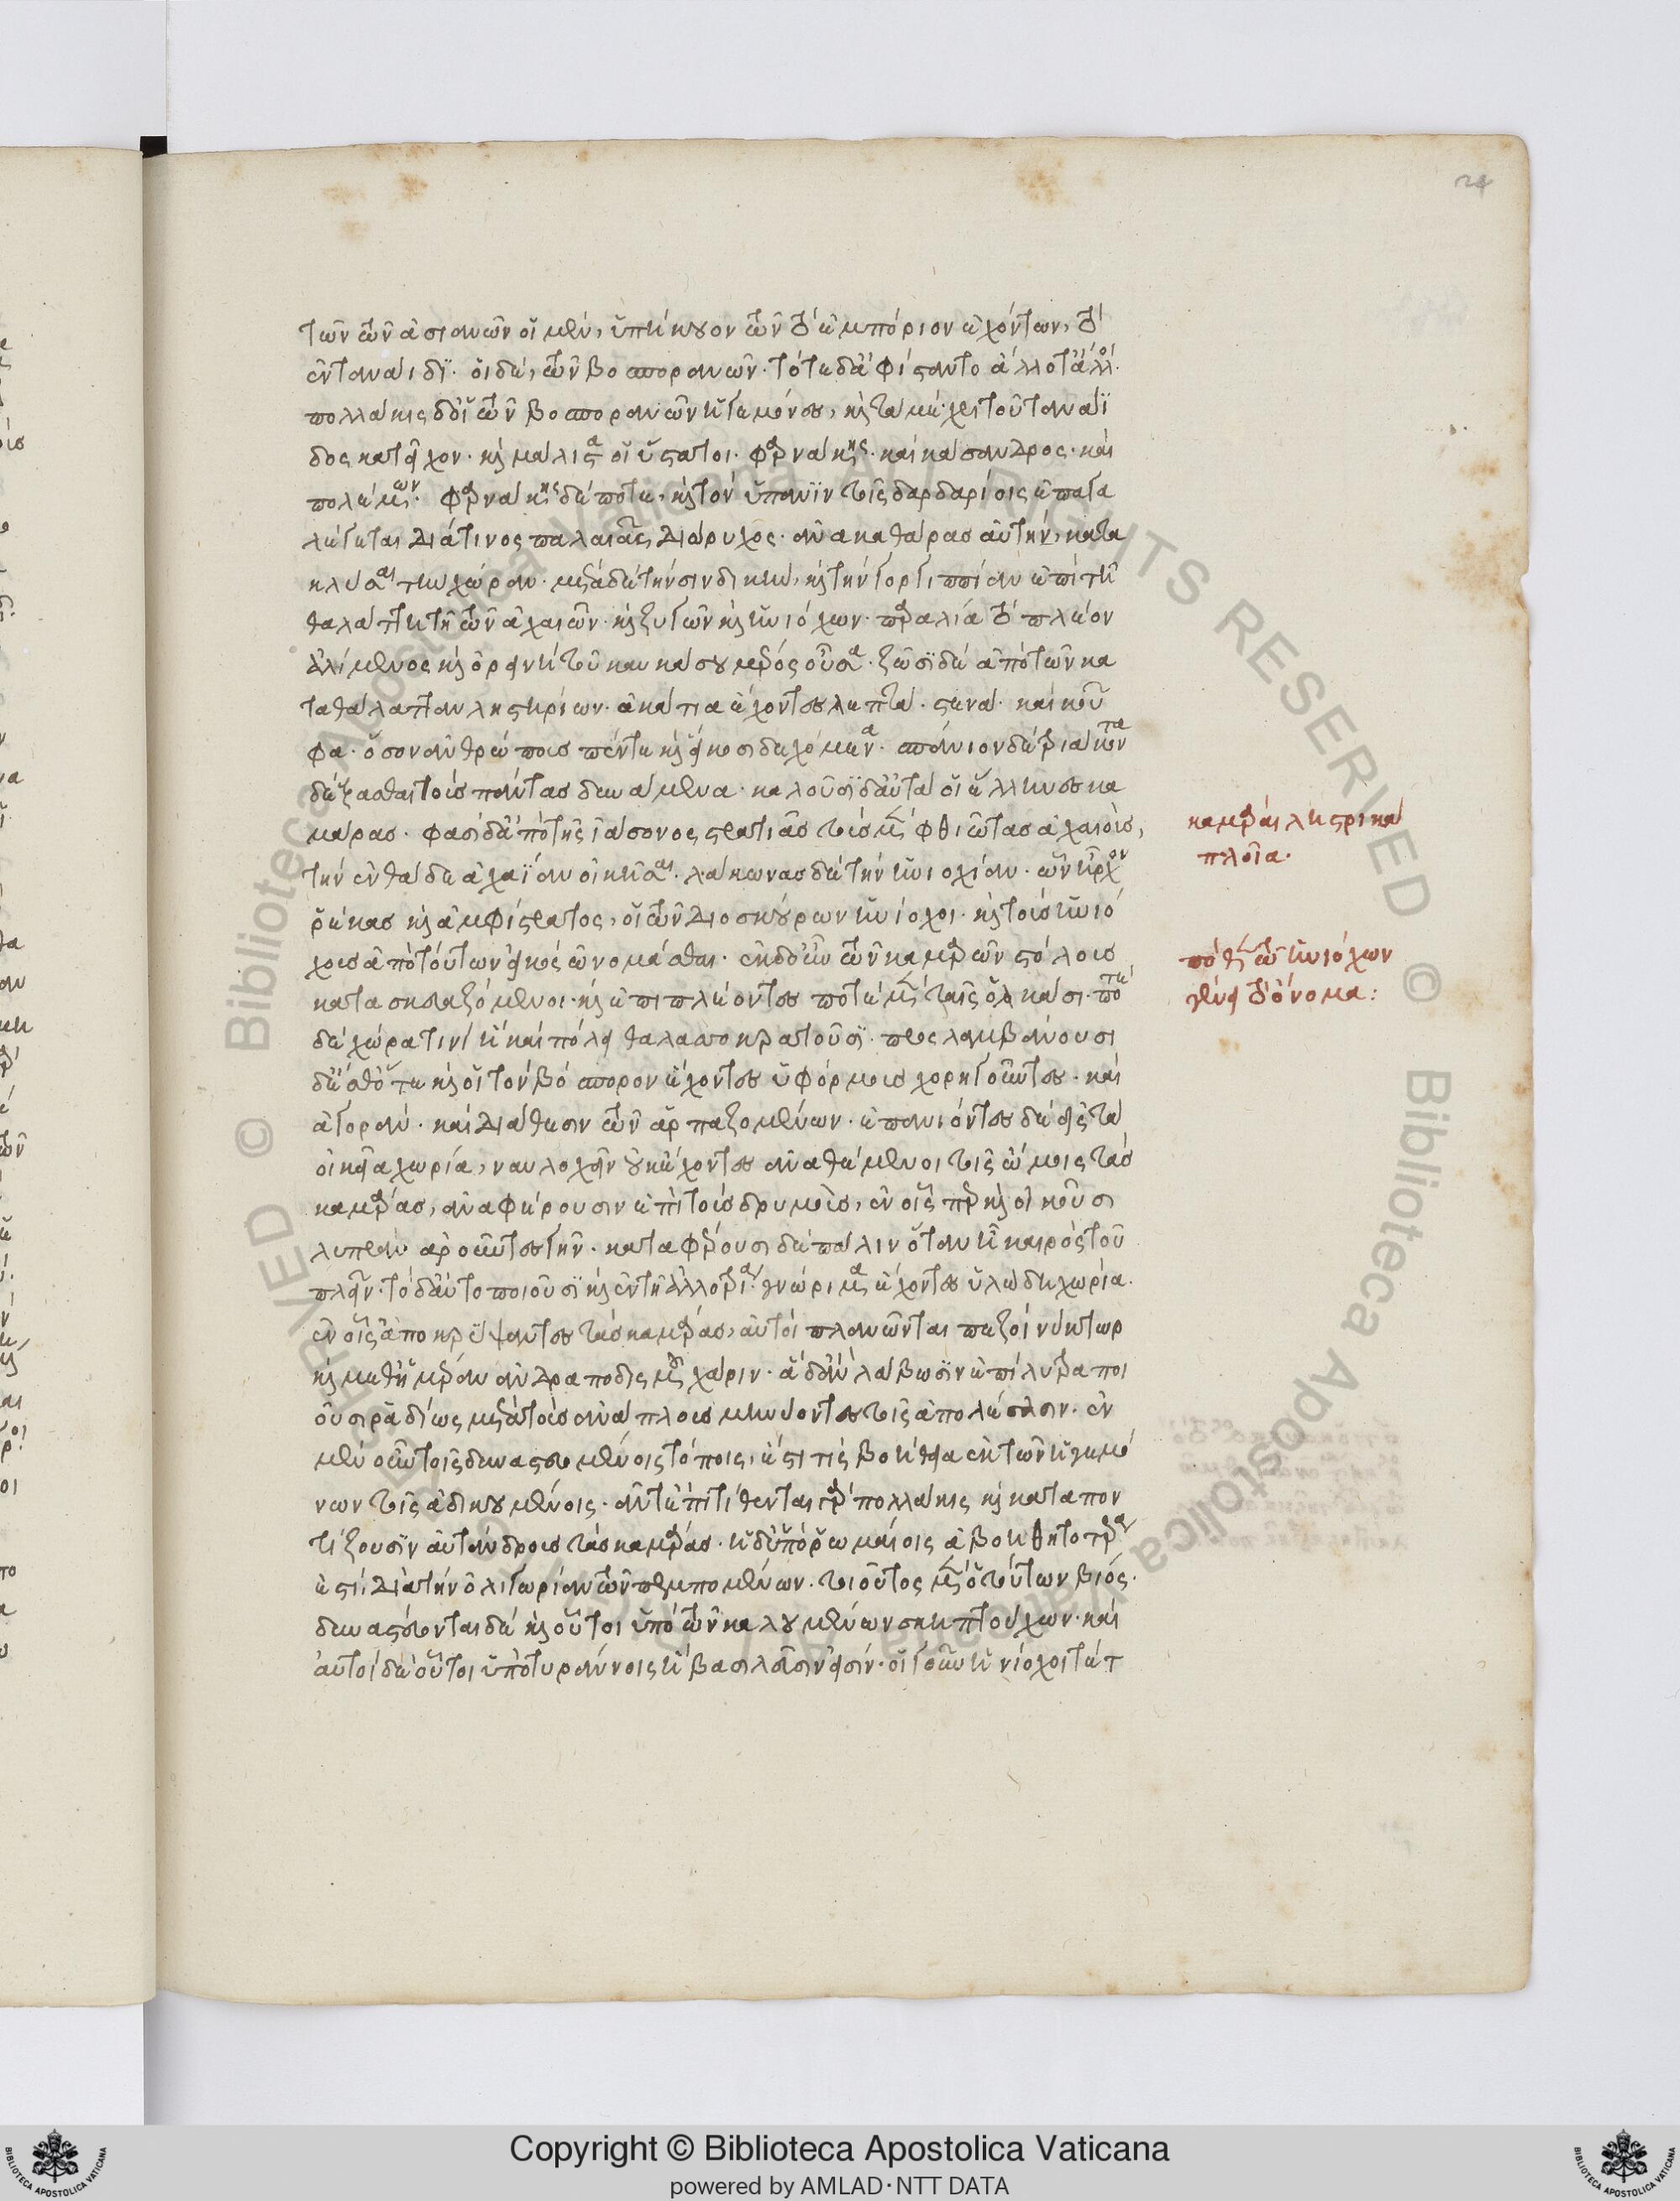 τῶν τῶν ἀσιανῶν οἱ μὲν, ὑπήκουον τῶν τὸ ἐμπόριον ἐχόντων, τὸ
ἐν ταναΐδι. οἱ δὲ, τῶν βοσπορανῶν. τότε δ' ἀφίσαντο ἄλλοτ' ἄλλοι.
πολλάκις δ' οἱ τῶν βοσπορανῶν ἡγεμόνες, καὶ τὰ μέχρι τοῦ ταναΐ
δος κατεῖχον. καὶ μάλιστα οἱ ὕστατοι. φαρνάκης. καὶ κάσανδρος. καὶ
πολέμων. φαρνάκης δέ ποτε, καὶ τὸν ὕπανιν τοῖς δαρδαρίοις ἐπαγα
λέγεται διά τινος παλαιᾶς διώρυχος. ἀνακαθάρας αὐτὴν, κατα
κλύσαι τὴν χώραν. μετὰ δὲ τὴν σινδικὴν, καὶ τὴν γοργιππίαν ἐπὶ τῆ
θαλάττη τῆ τῶν ἀχαιῶν. καὶ ζυγῶν καὶ ἡνιόχων. παραλία τὸ πλέον
ἀλίμενος καὶ ὀρεινὴ τοῦ καυκάσου μέρος οὖσα. ζῶσι δὲ ἀπὸ τῶν κα
τὰ θάλατταν ληστηρίων. ἀκάτια ἔχοντες λεπτὰ. στενὰ. καὶ κοῦ
φα. ὅσον ἀνθρώπους πέντε καὶ εἴκοσι δεχόμενα. σπάνιον δὲ τριάκοντα
δέξασθαι τοὺς πάντας δυνάμενα. καλοῦσι δ' αὐτὰ οἱ ἕλληνες κα
μάρας. φασὶ δ' ἀπὸ τῆς ἰάσονος στρατιᾶς τοὺς μὲν φθιώτας ἀχαιοὺς,
τὴν ἐνθάδε ἀχαΐαν οἰκῆσαι. λάκωνας δὲ τὴν ἡνιοχίαν. ὧν ἦρχον
ῥέκας καὶ ἀμφίστρατος, οἱ τῶν διοσκούρων ἡνίοχοι. καὶ τοὺς ἡνιό
χους ἀπὸ τούτων εἰκὸς ὠνομάσθαι. ἐκ δ' οὖν τῶν καμαρῶν στόλους
κατασκευαζόμενοι. καὶ ἐπιπλέοντες ποτὲ μὲν ταῖς ὁλκάσι. ποτὲ
δὲ χώρα τινὶ ἢ καὶ πόλει θαλασσοκρατοῦσι. προσλαμβάνουσι
δ' ἔσθ' ὅτε καὶ οἱ τὸν βόσπορον ἔχοντες ὑφόρμους χορηγοῦντες. καὶ
ἀγορὰν. καὶ διάθεσιν τῶν ἁρπαζομένων. ἐπανιόντες δὲ εἰς τὰ
οἰκεῖα χωρία, ναυλοχεῖν οὐκ ἔχοντες ἀναθέμενοι τοῖς ὤμοις τὰς
καμάρας, ἀναφέρουσιν ἐπὶ τοὺς δρυμοὺς, ἐν οἷσπερ καὶ οἰκοῦσι
λυπρὰν ἀροῦντες γῆν. καταφέρουσι δὲ πάλιν ὅταν ἦ καιρὸς τοῦ
πλεῖν. τὸ δ' αὐτὸ ποιοῦσι καὶ ἐν τῆ ἀλλοτρία. γνώριμα ἔχοντες ὑλώδη χωρία.
ἐν οἷς ἀποκρύψαντες τὰς καμάρας, αὐτοὶ πλανῶνται πεζοὶ νύκτωρ
καὶ μεθ' ἡμέραν ἀνδραποδισμοῦ χάριν. ἃ δ' ἂν λάβωσιν ἐπίλυτρα ποι
οῦσι ῥαδίως μετὰ τοὺς ἀνάπλους μηνύοντες τοῖς ἀπολέσασιν. ἐν
μὲν οὖν τοῖς δυναστευομένοις τόποις, ἔστι τις βοήθεια ἐκ τῶν ἡγεμό
νων τοῖς ἀδικουμένοις. ἀντεπιτίθενται γὰρ πολλάκις καὶ καταπον
τίζουσιν αὐτάνδρους τὰς καμάρας. ἡ δ' ὑπὸ ῥωμαίοις ἀβοηθητοτέρα
ἐστὶ, διὰ τὴν ὀλιγωρίαν τῶν πεμπομένων. τοιοῦτος μὲν ὁ τούτων βίος.
δυναστεύονται δὲ καὶ οὗτοι ὑπὸ τῶν καλουμένων σκηπτούχων. καὶ
αὐτοὶ δὲ οὗτοι ὑπὸ τυράννοις ἢ βασιλεῦσιν εἰσίν. οἱ γοῦν ἡνίοχοι τέτ
καμάραι ληστρικὰ
πλοῖα.
πόθεν τῶν ἡνιόχων
γένει τὸ ὄνομα: